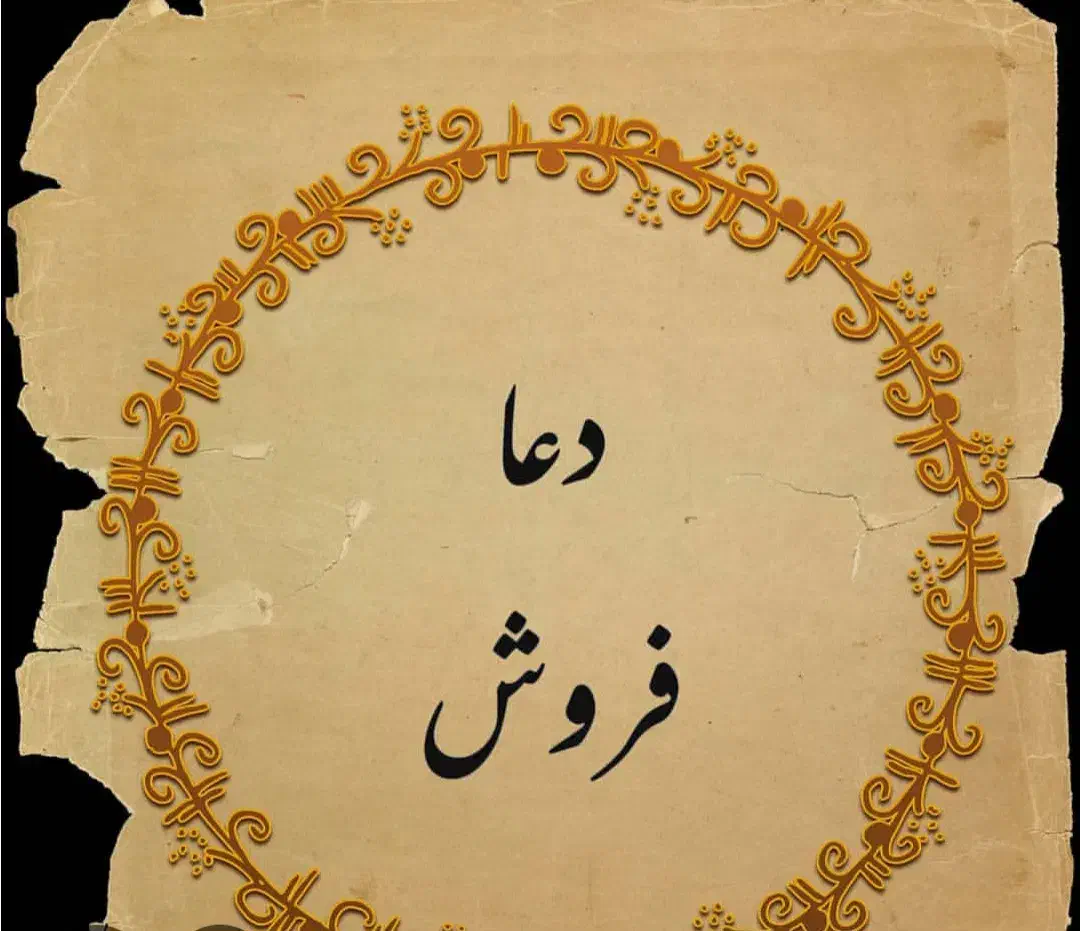 دعا
فروش